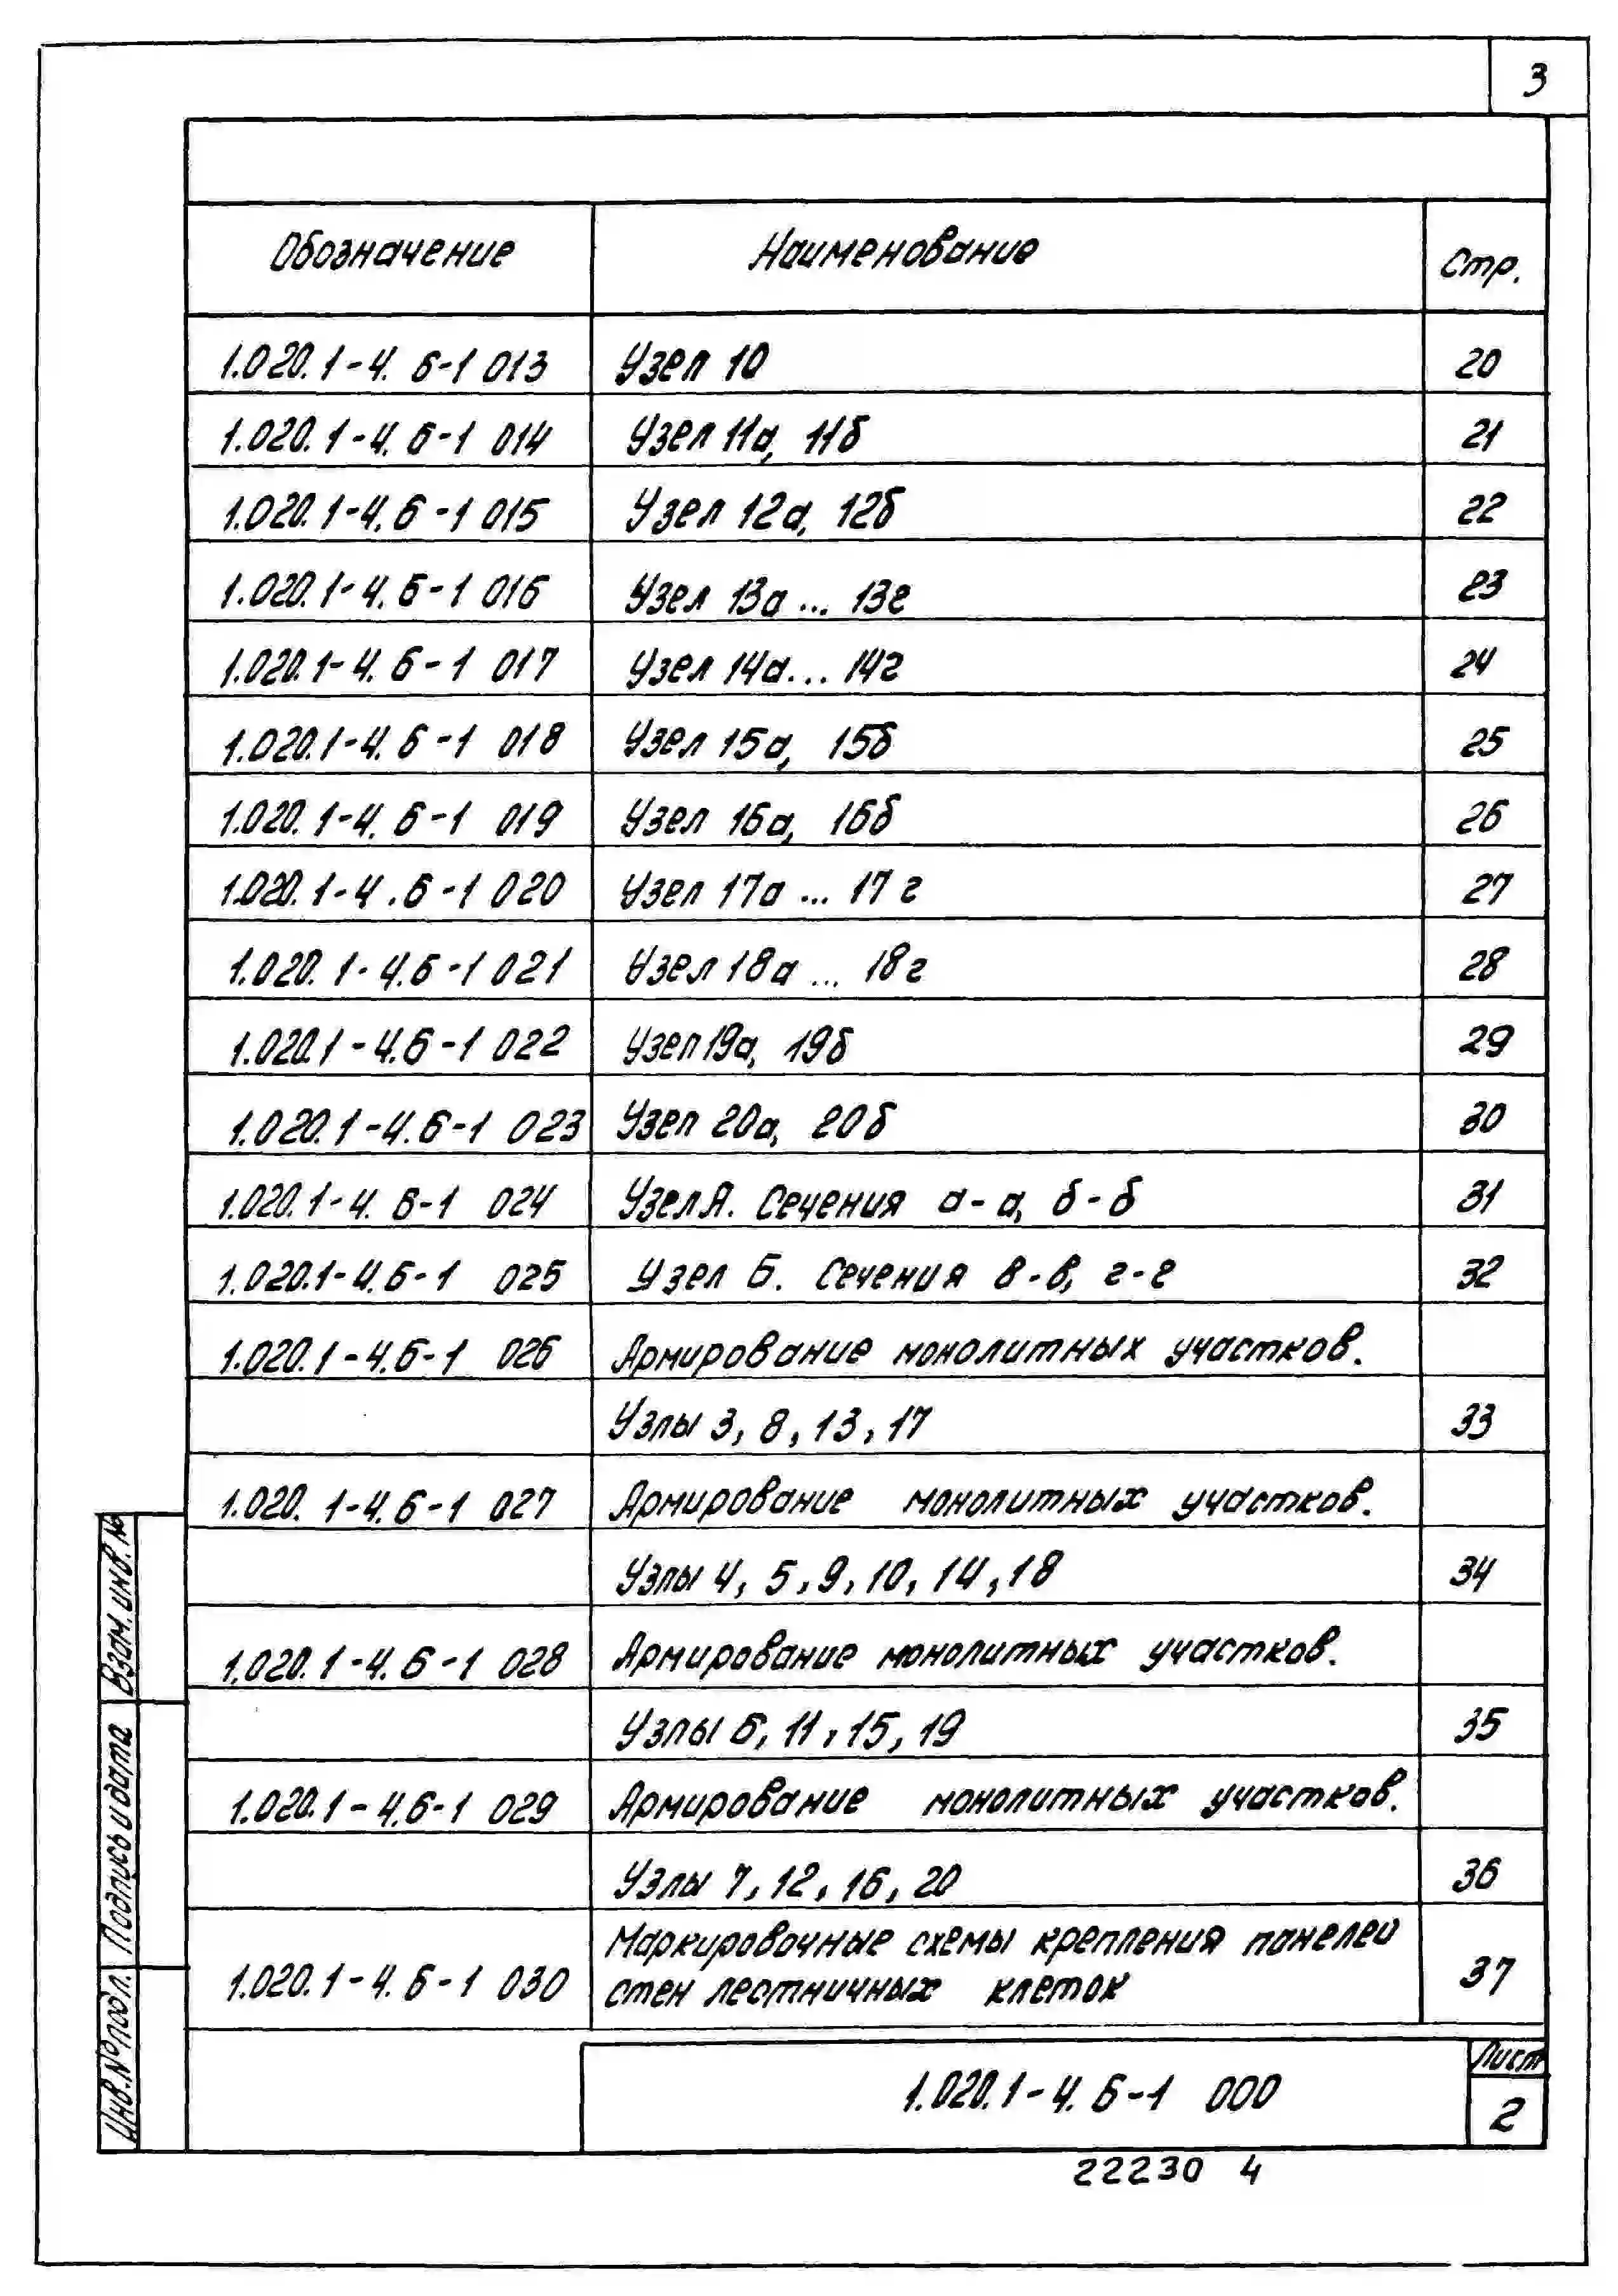 3
Обозначение Наименование Стр.
1.020.1-4. 6-1 013 Узел 10 20
1.020.1-4. 6-1 014 Узел 11а, 11б 21
1.020.1-4. 6-1 015 Узел 12а, 12б 22
1.020.1-4. 6-1 016 Узел 13а ... 13г 23
1.020.1-4. 6-1 017 Узел 14а... 14г 24
1.020.1-4. 6-1 018 Узел 15а, 15б 25
1.020.1-4. 6-1 019 Узел 16а, 16б 26
1.020.1-4.6-1 020 Узел 17а ... 17г 27
1.020.1-4.6-1 021 Узел 18а ... 18г 28
1.020.1-4.6-1 022 Узел 19а, 19б 29
1.020.1-4.6-1 023 Узел 20а, 20б 30
1.020.1-4. 6-1 024 Узел А. Сечения а-а, б-б 31
1.020.1-4.6-1 025 Узел Б. Сечения в-в, г-г 32
1.020.1-4.6-1 026 Армирование монолитных участков.
Узлы 3, 8, 13, 17 33
1.020.1-4.6-1 027 Армирование монолитных участков.
Узлы 4, 5, 9, 10, 14, 18 34
1.020.1-4.6-1 028 Армирование монолитных участков.
Узлы 6, 11, 15, 19 35
1.020.1-4.6-1 029 Армирование монолитных участков.
Узлы 7, 12, 16, 20 36
1.020.1-4.6-1 030 Маркировочные схемы крепления панелей
стен лестничных клеток 37
Взам. инв. №
Подпись и дата
Инв. № подл.
1.020.1-4. 6-1 000
Лист
2
22230 4